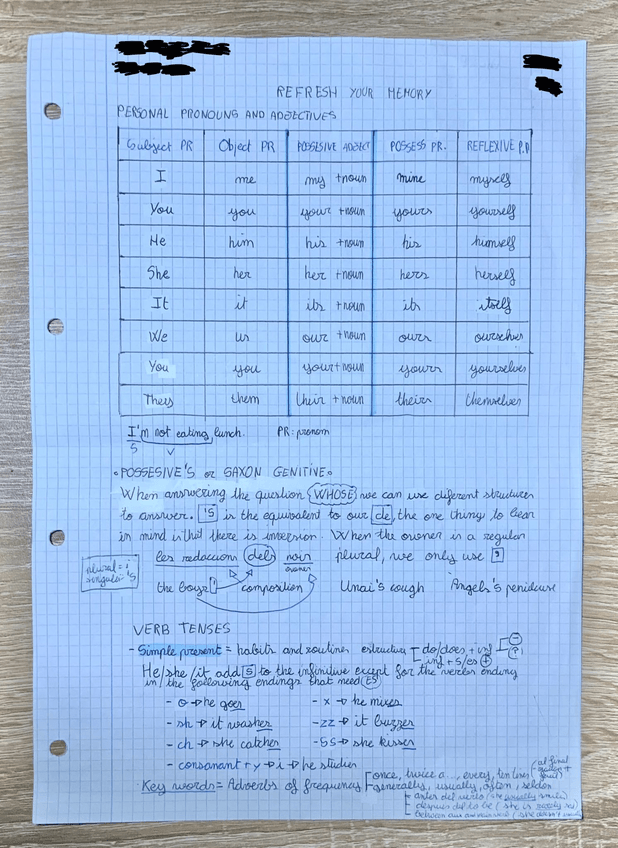 REFRESH YOUR MEMORY
PERSONAL PRONOUNS AND ADJECTIVES
Subject PR Object PR POSSESIVE ADJECT POSSESS PR. REFLEXIVE P.D
I me my +noun mine myself
You you your +noun yours yourself
He him his +noun his himself
She her her +noun hers herself
It it its +noun its itself
We us our +noun ours ourselves
You you your+noun yours yourselves
They them their +noun theirs themselves
I'm not eating lunch. PR: pronom
S V
•POSSESIVE'S or SAXON GENITIVE•
When answering the question WHOSE we can use different structures
to answer. 's is the equivalent to our de, the one thing to bear
in mind is that there is inversion. When the owner is a regular
plural, we only use '
les redaccions dels nois
owner
plural = '
singular 's
the boys' composition Unai's cough Angels's
VERB TENSES
- Simple present = habits and routines estructura do/does + inf - ?
inf + s/es +
He/she/it add S to the infinitive except for the verbs ending
in the following endings that need ES
- o → he goes - x → he mixes
- sh → it washes -zz → it buzzes
- ch → she catches -SS → she kisses
- consonant + y → i → he studies
Key words = Adverbs of frequency once, twice a..., every, ten times (al final
generally, usually, often, seldon
despues del to be (she is rarely